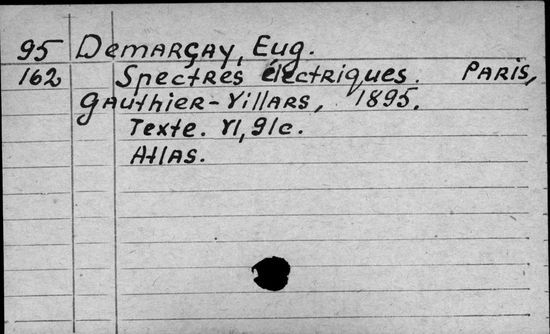 95 Demarçay, Eug.
162 Spectres électriques. Paris,
Gauthier-Villars, 1895.
Texte. VI, 91c.
Atlas.